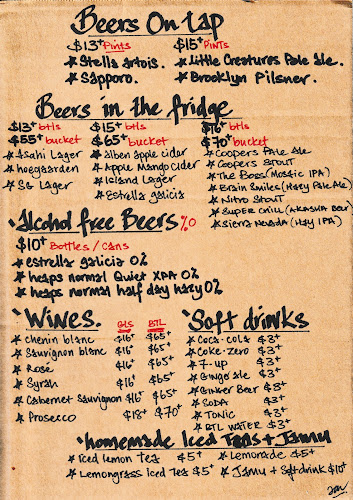 Beers On tap
$13+ Pints $15+ Pints
★ Stella Artois. ★ Little Creatures Pale Ale.
★ Sapporo. ★ Brooklyn Pilsner.
Beers in the fridge
$13+ btls $15+ btls $16+ btls
$55+ bucket $65+ bucket $70+ bucket
★ Asahi Lager ★ Alben apple cider ★ Coopers Pale Ale
★ hoegaarden ★ Apple Mango Cider ★ Coopers STOUT
★ SG Lager ★ Island Lager ★ The Boss (Mosaic IPA)
★ Estrella Galicia ★ Brain Smiles (Hazy Pale Ale)
★ Nitro Stout
★ SUPER CHILL (AKASHA Bar)
★ Sierra Nevada (Hazy IPA)
alcohol free Beers %0
$10+ Bottles / Cans
★ estrella galicia 0%
★ heaps normal Quiet XPA 0%
★ heaps normal half day hazy 0%
Wines. GLS BTL
★ chenin blanc $16+ $65+
★ Sauvignon blanc $16+ $65+
★ Rosé $16+ $65+
★ Syrah $16+ $65+
★ Cabernet Sauvignon $16+ $65+
★ Prosecco $18+ $70+
Soft drinks
★ Coca-cola $3+
★ Coke-zero $3+
★ 7-up $3+
★ Ginger ale $3+
★ Ginger Beer $3+
★ SODA $3+
★ TONIC $3+
★ BTL WATER $3+
homemade Iced Teas + Jamu
★ Iced lemon Tea $5+ ★ Lemonade $5+
★ Lemongrass Iced Tea $5+ ★ Jamu + Softdrink $10+